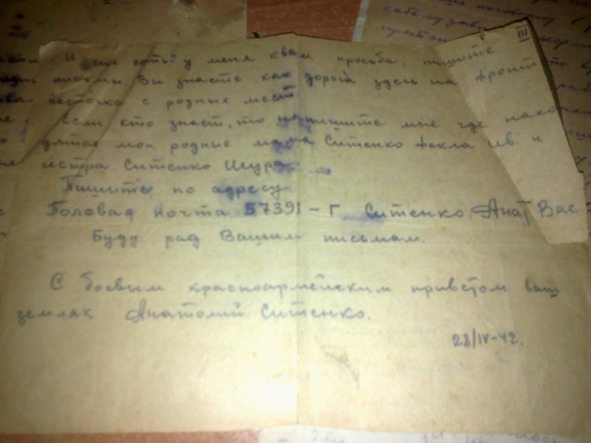 И еще есть у меня к вам просьба, пишите
письма. Вы знаете как дорога здесь на фронте
весточка с родных мест
если кто знает, то напишите мне где находятся
мои родные мама Ситенко Фекла Ив. и
сестра Ситенко Шура
Пишите по адресу
Полевая почта 57391-Г Ситенко Анат Вас
Буду рад Вашим письмам.
С боевым красноармейским приветом ваш
земляк Анатолий Ситенко.
28/IV-42.
III